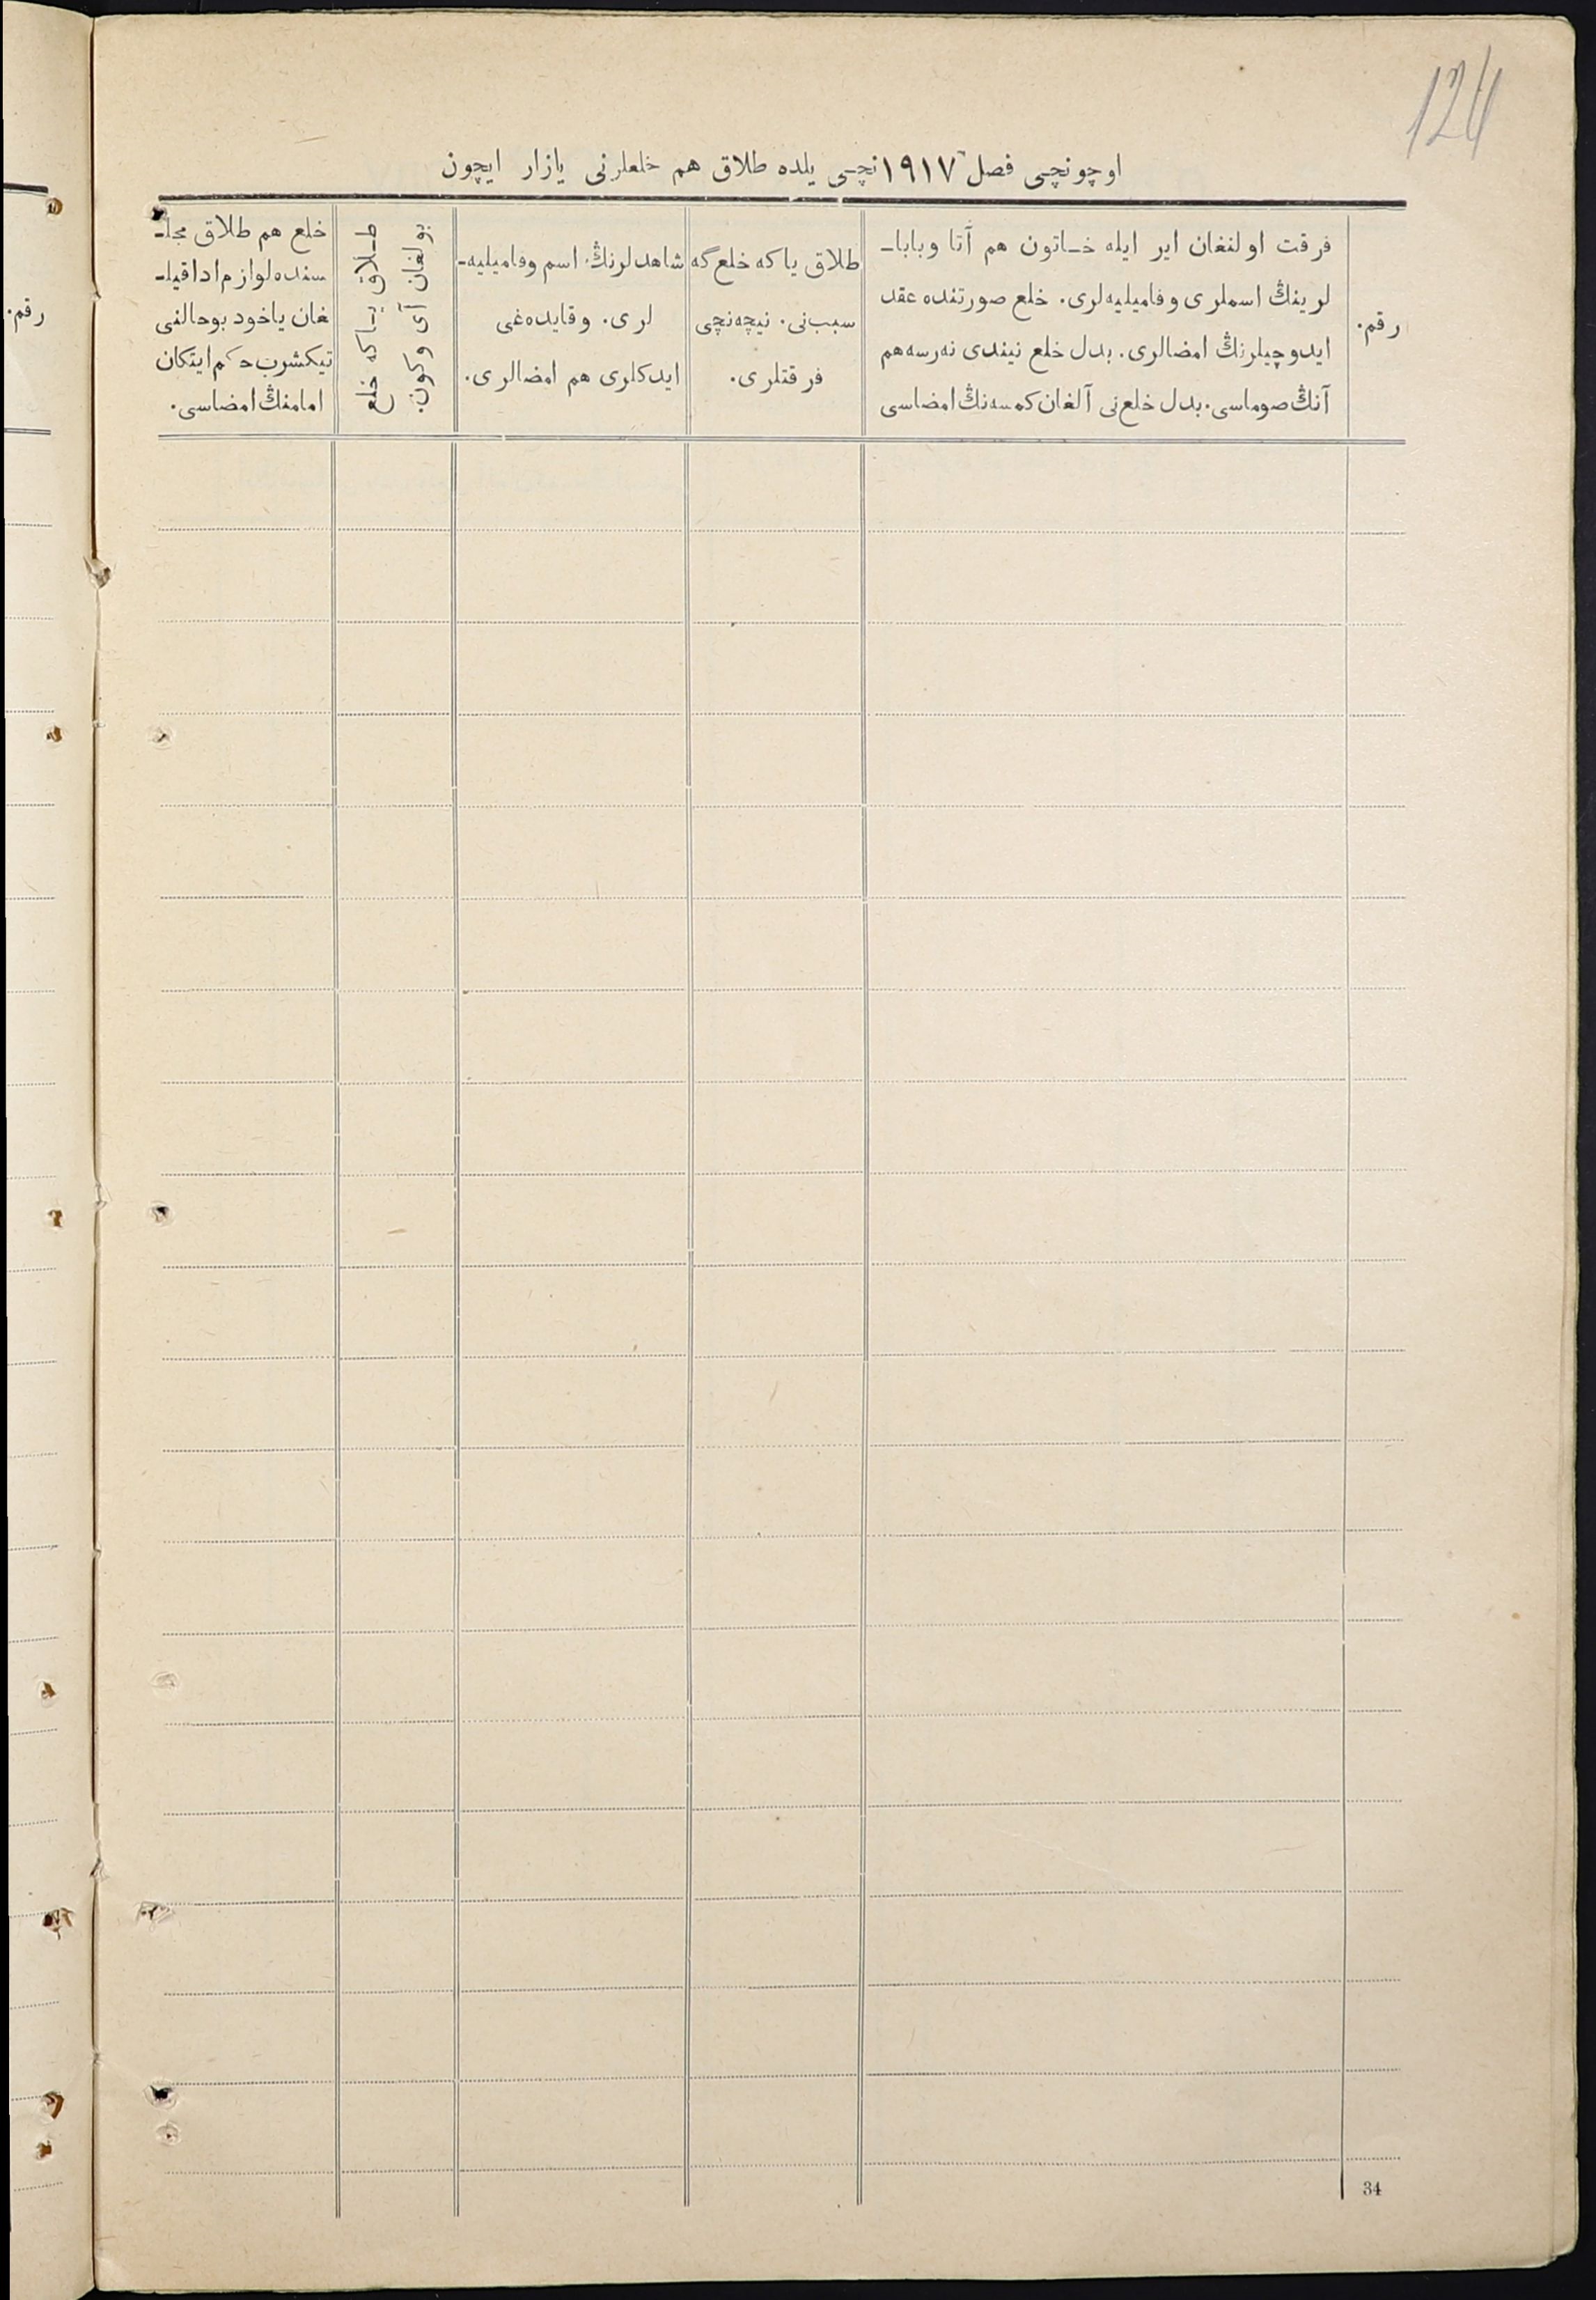 124
اوچونچی فصل ۱۹۱۷نچی یلده طلاق هم خلعلرنی یازار ایچون
رقم.
فرقت اولنغان ایر ایله خاتون هم آتا وبابا-
لرینڭ اسملری وفامیلیه‌لری. خلع صورتنده عقد
ایدوچیلرنڭ امضالری. بدل خلع نیندی نه‌رسه‌هم
آنڭ صوماسی. بدل خلع‌نی آلغان کمسه‌نڭ امضاسی
طلاق یا که خلع گه
سبب‌نی. نیچه‌نچی
فرقتلری.
شاهدلرنڭ اسم وفامیلیه-
لری. وقایده‌غی
ایدکلری هم امضالری.
طلاق یا که خلع
بولغان آی وکون.
خلع هم طلاق مجلـ
سنده‌لوازم ادا قیلـ
غان یاخود بوحالنی
تیکشرب حکم ایتکان
امامنڭ امضاسی.
رقم.
34